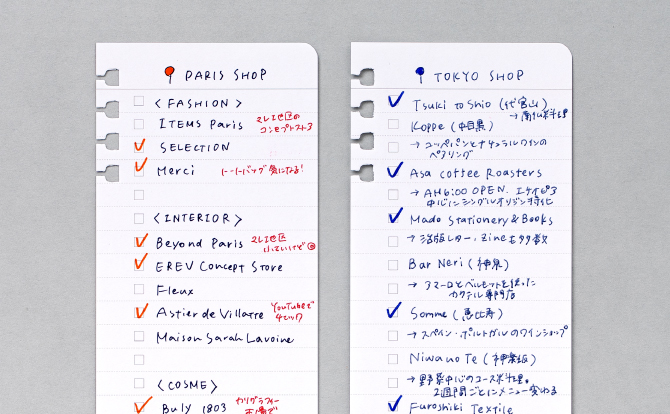 PARIS SHOP
<FASHION>
ITEMS Paris
2人1地区の
コンセプトストア
SELECTION
Merci
トートバッグ気になる!
<INTERIOR>
Beyond Paris
EREV Concept Store
Fleux
Astier de Villatte
YouTubeで
チェック
Maison Sarah Lavoine
<COSME>
Buly 1803
カリグラフィー
TOKYO SHOP
Tsuki to Shio (代官山)
→ 南仏料理
Koppe (中目黒)
→ コッペパンとナチュラルワインの
ペアリング
Asa Coffee Roasters
→ AM6:00 OPEN. エチオピア
中心にシングルオリジン特化
Mado Stationery & Books
→ 活版レター、Zineも多数
Bar Neri (神泉)
→ アマーロとベルモットを使った
カクテル専門店
Somme (恵比寿)
→ スペイン・ポルトガルのワインショップ
Niwa no Te (神楽坂)
→ 野菜中心のコース料理。
2週間ごとにメニュー変わる
Furoshiki Textile